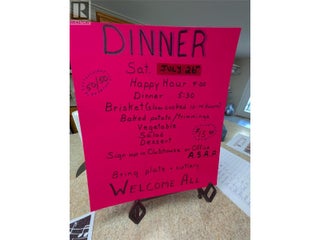 DINNER
Sat. JULY 26
Happy Hour 4:00
Dinner 5:30
50/50
Brisket (slow cooked to
Baked potato/trimmings
Vegetable
Salad
Dessert
Sign up in Clubhouse or Office
A.S.A.P
Bring plate + cutlery
WELCOME ALL